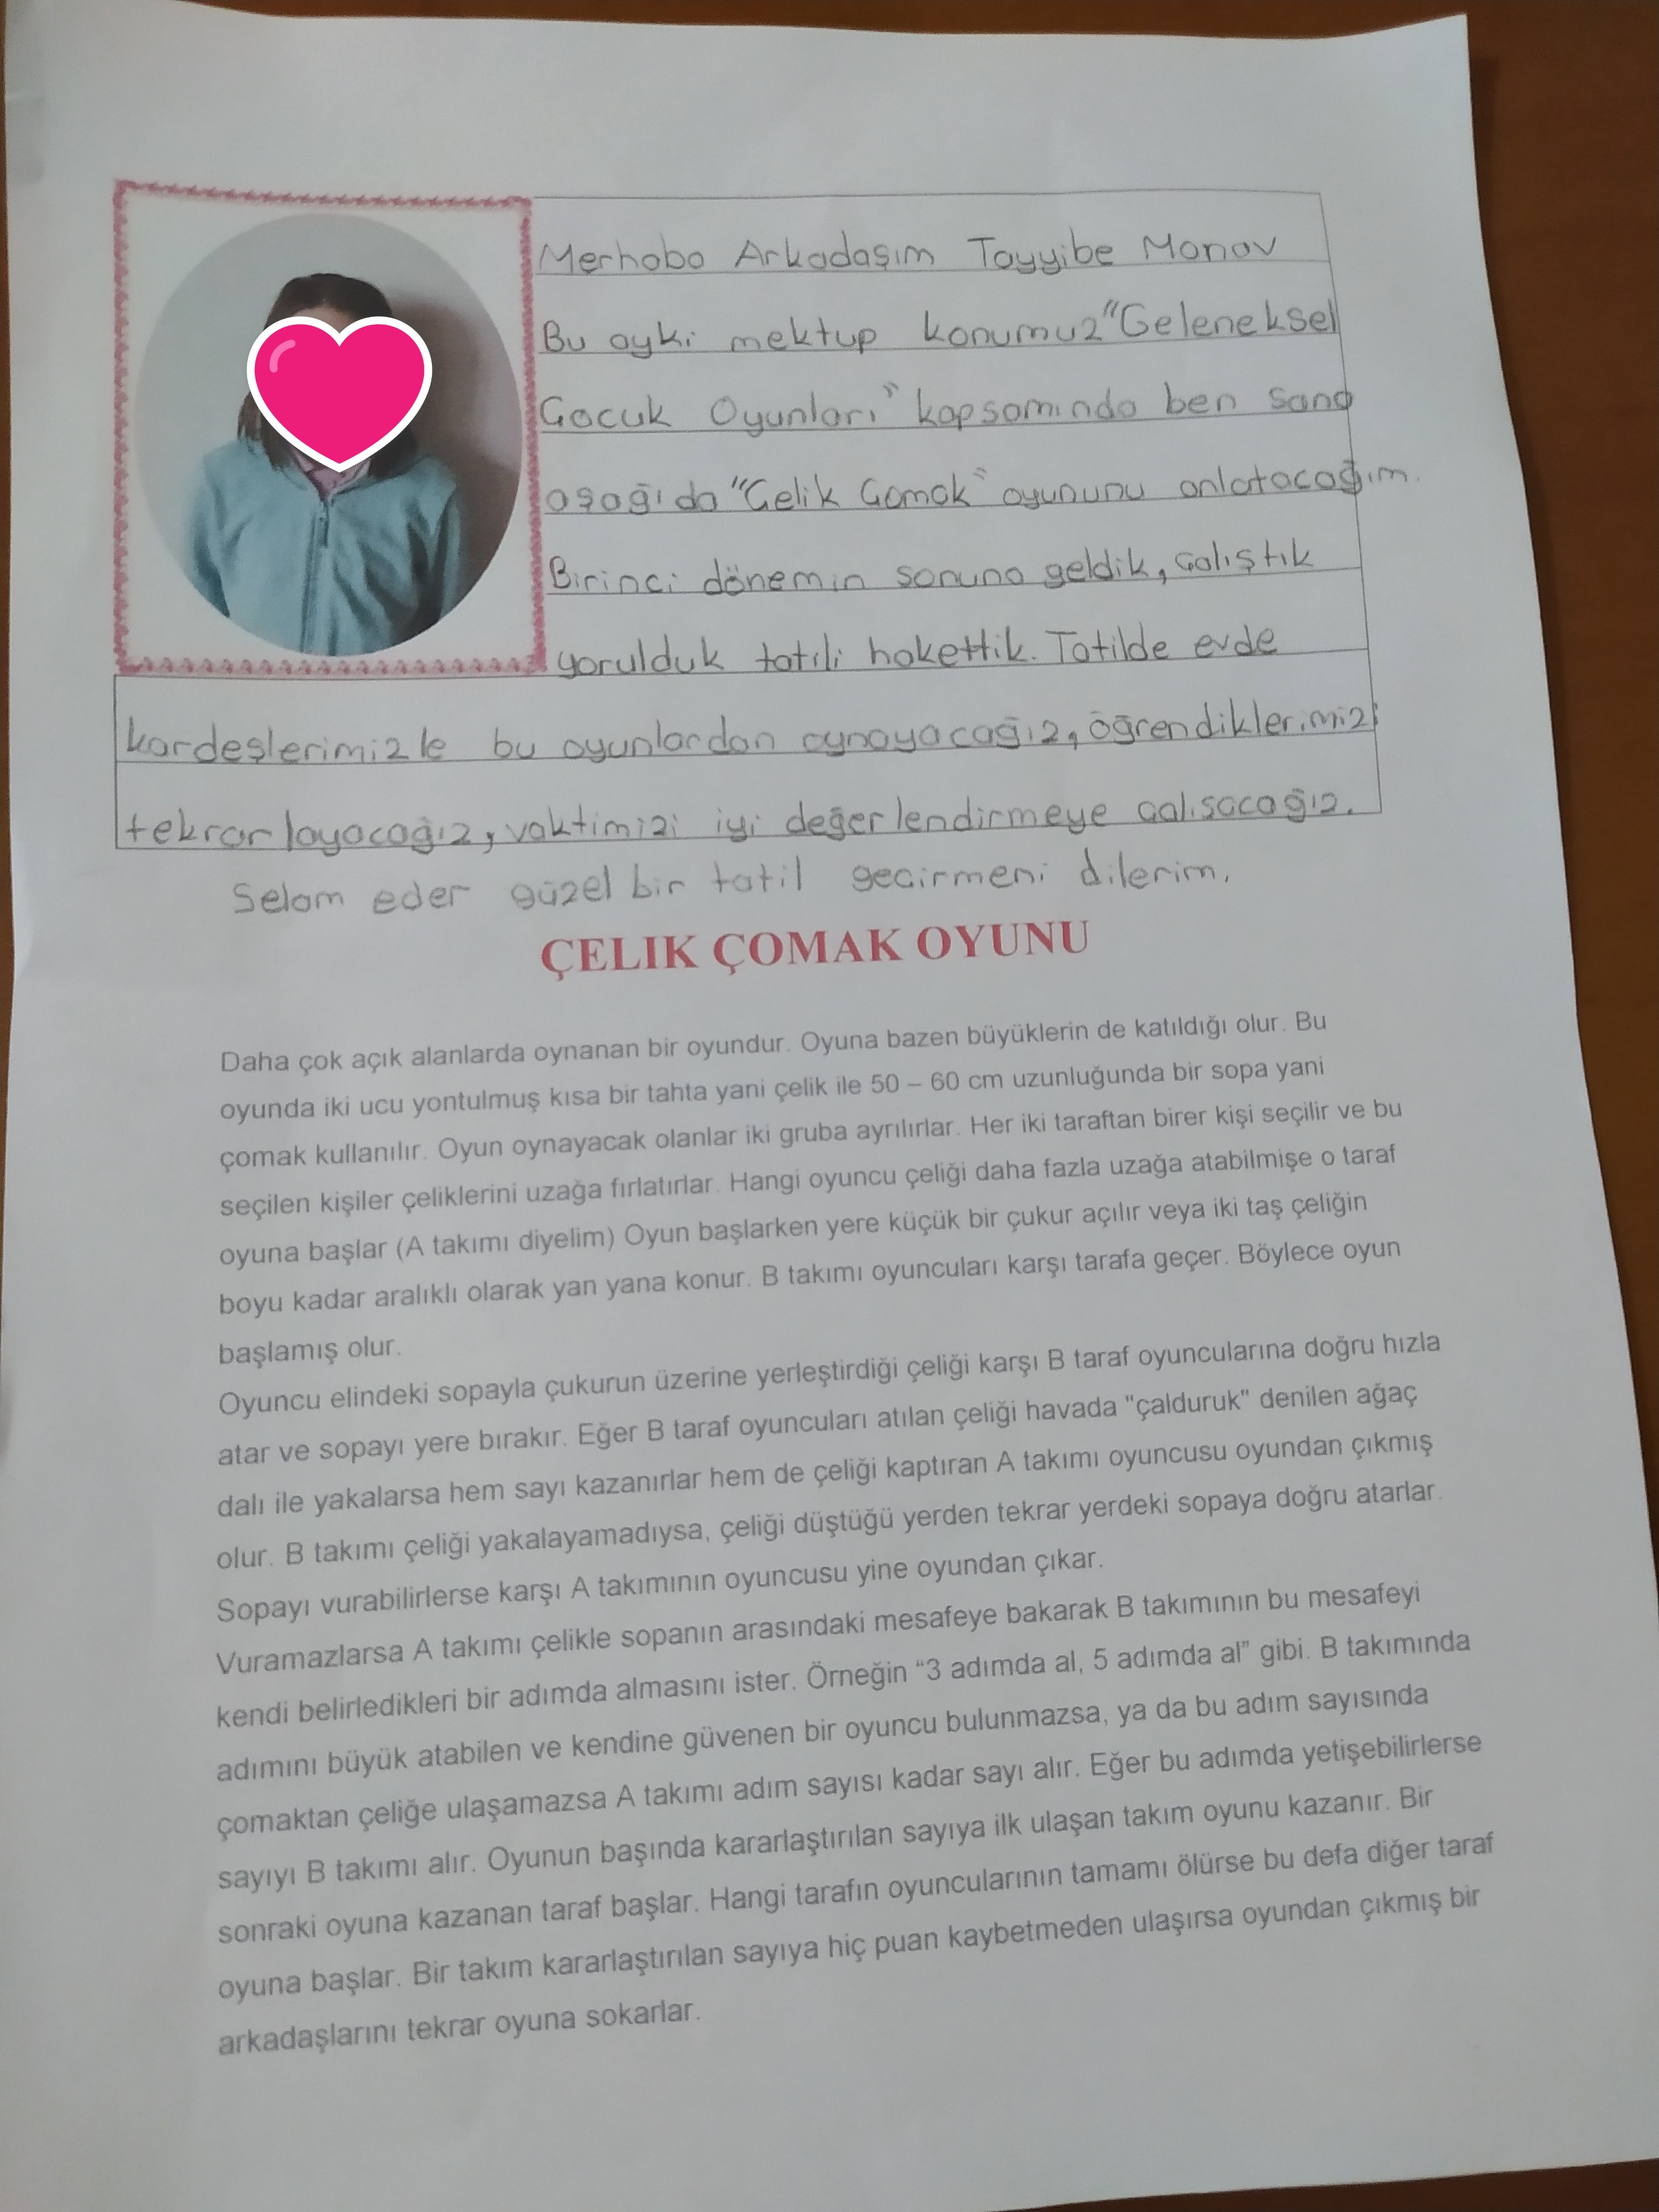 Merhaba Arkadaşım Tayyibe Manav
Bu ayki mektup konumuz "Geleneksel
Çocuk Oyunları" kapsamında ben sana
aşağıda "Çelik Çomak" oyununu anlatacağım.
Birinci dönemin sonuna geldik, çalıştık
yorulduk tatili hakettik. Tatilde evde
kardeşlerimizle bu oyunlardan oynayacağız, öğrendiklerimizi
tekrarlayacağız, vaktimizi iyi değerlendirmeye çalışacağız.
Selam eder güzel bir tatil geçirmeni dilerim.
ÇELIK ÇOMAK OYUNU
Daha çok açık alanlarda oynanan bir oyundur. Oyuna bazen büyüklerin de katıldığı olur. Bu
oyunda iki ucu yontulmuş kısa bir tahta yani çelik ile 50 – 60 cm uzunluğunda bir sopa yani
çomak kullanılır. Oyun oynayacak olanlar iki gruba ayrılırlar. Her iki taraftan birer kişi seçilir ve bu
seçilen kişiler çeliklerini uzağa fırlatırlar. Hangi oyuncu çeliği daha fazla uzağa atabilmişe o taraf
oyuna başlar (A takımı diyelim) Oyun başlarken yere küçük bir çukur açılır veya iki taş çeliğin
boyu kadar aralıklı olarak yan yana konur. B takımı oyuncuları karşı tarafa geçer. Böylece oyun
başlamış olur.
Oyuncu elindeki sopayla çukurun üzerine yerleştirdiği çeliği karşı B taraf oyuncularına doğru hızla
atar ve sopayı yere bırakır. Eğer B taraf oyuncuları atılan çeliği havada "çalduruk" denilen ağaç
dalı ile yakalarsa hem sayı kazanırlar hem de çeliği kaptıran A takımı oyuncusu oyundan çıkmış
olur. B takımı çeliği yakalayamadıysa, çeliği düştüğü yerden tekrar yerdeki sopaya doğru atarlar.
Sopayı vurabilirlerse karşı A takımının oyuncusu yine oyundan çıkar.
Vuramazlarsa A takımı çelikle sopanın arasındaki mesafeye bakarak B takımının bu mesafeyi
kendi belirledikleri bir adımda almasını ister. Örneğin “3 adımda al, 5 adımda al” gibi. B takımında
adımını büyük atabilen ve kendine güvenen bir oyuncu bulunmazsa, ya da bu adım sayısında
çomaktan çeliğe ulaşamazsa A takımı adım sayısı kadar sayı alır. Eğer bu adımda yetişebilirlerse
sayıyı B takımı alır. Oyunun başında kararlaştırılan sayıya ilk ulaşan takım oyunu kazanır. Bir
sonraki oyuna kazanan taraf başlar. Hangi tarafın oyuncularının tamamı ölürse bu defa diğer taraf
oyuna başlar. Bir takım kararlaştırılan sayıya hiç puan kaybetmeden ulaşırsa oyundan çıkmış bir
arkadaşlarını tekrar oyuna sokarlar.